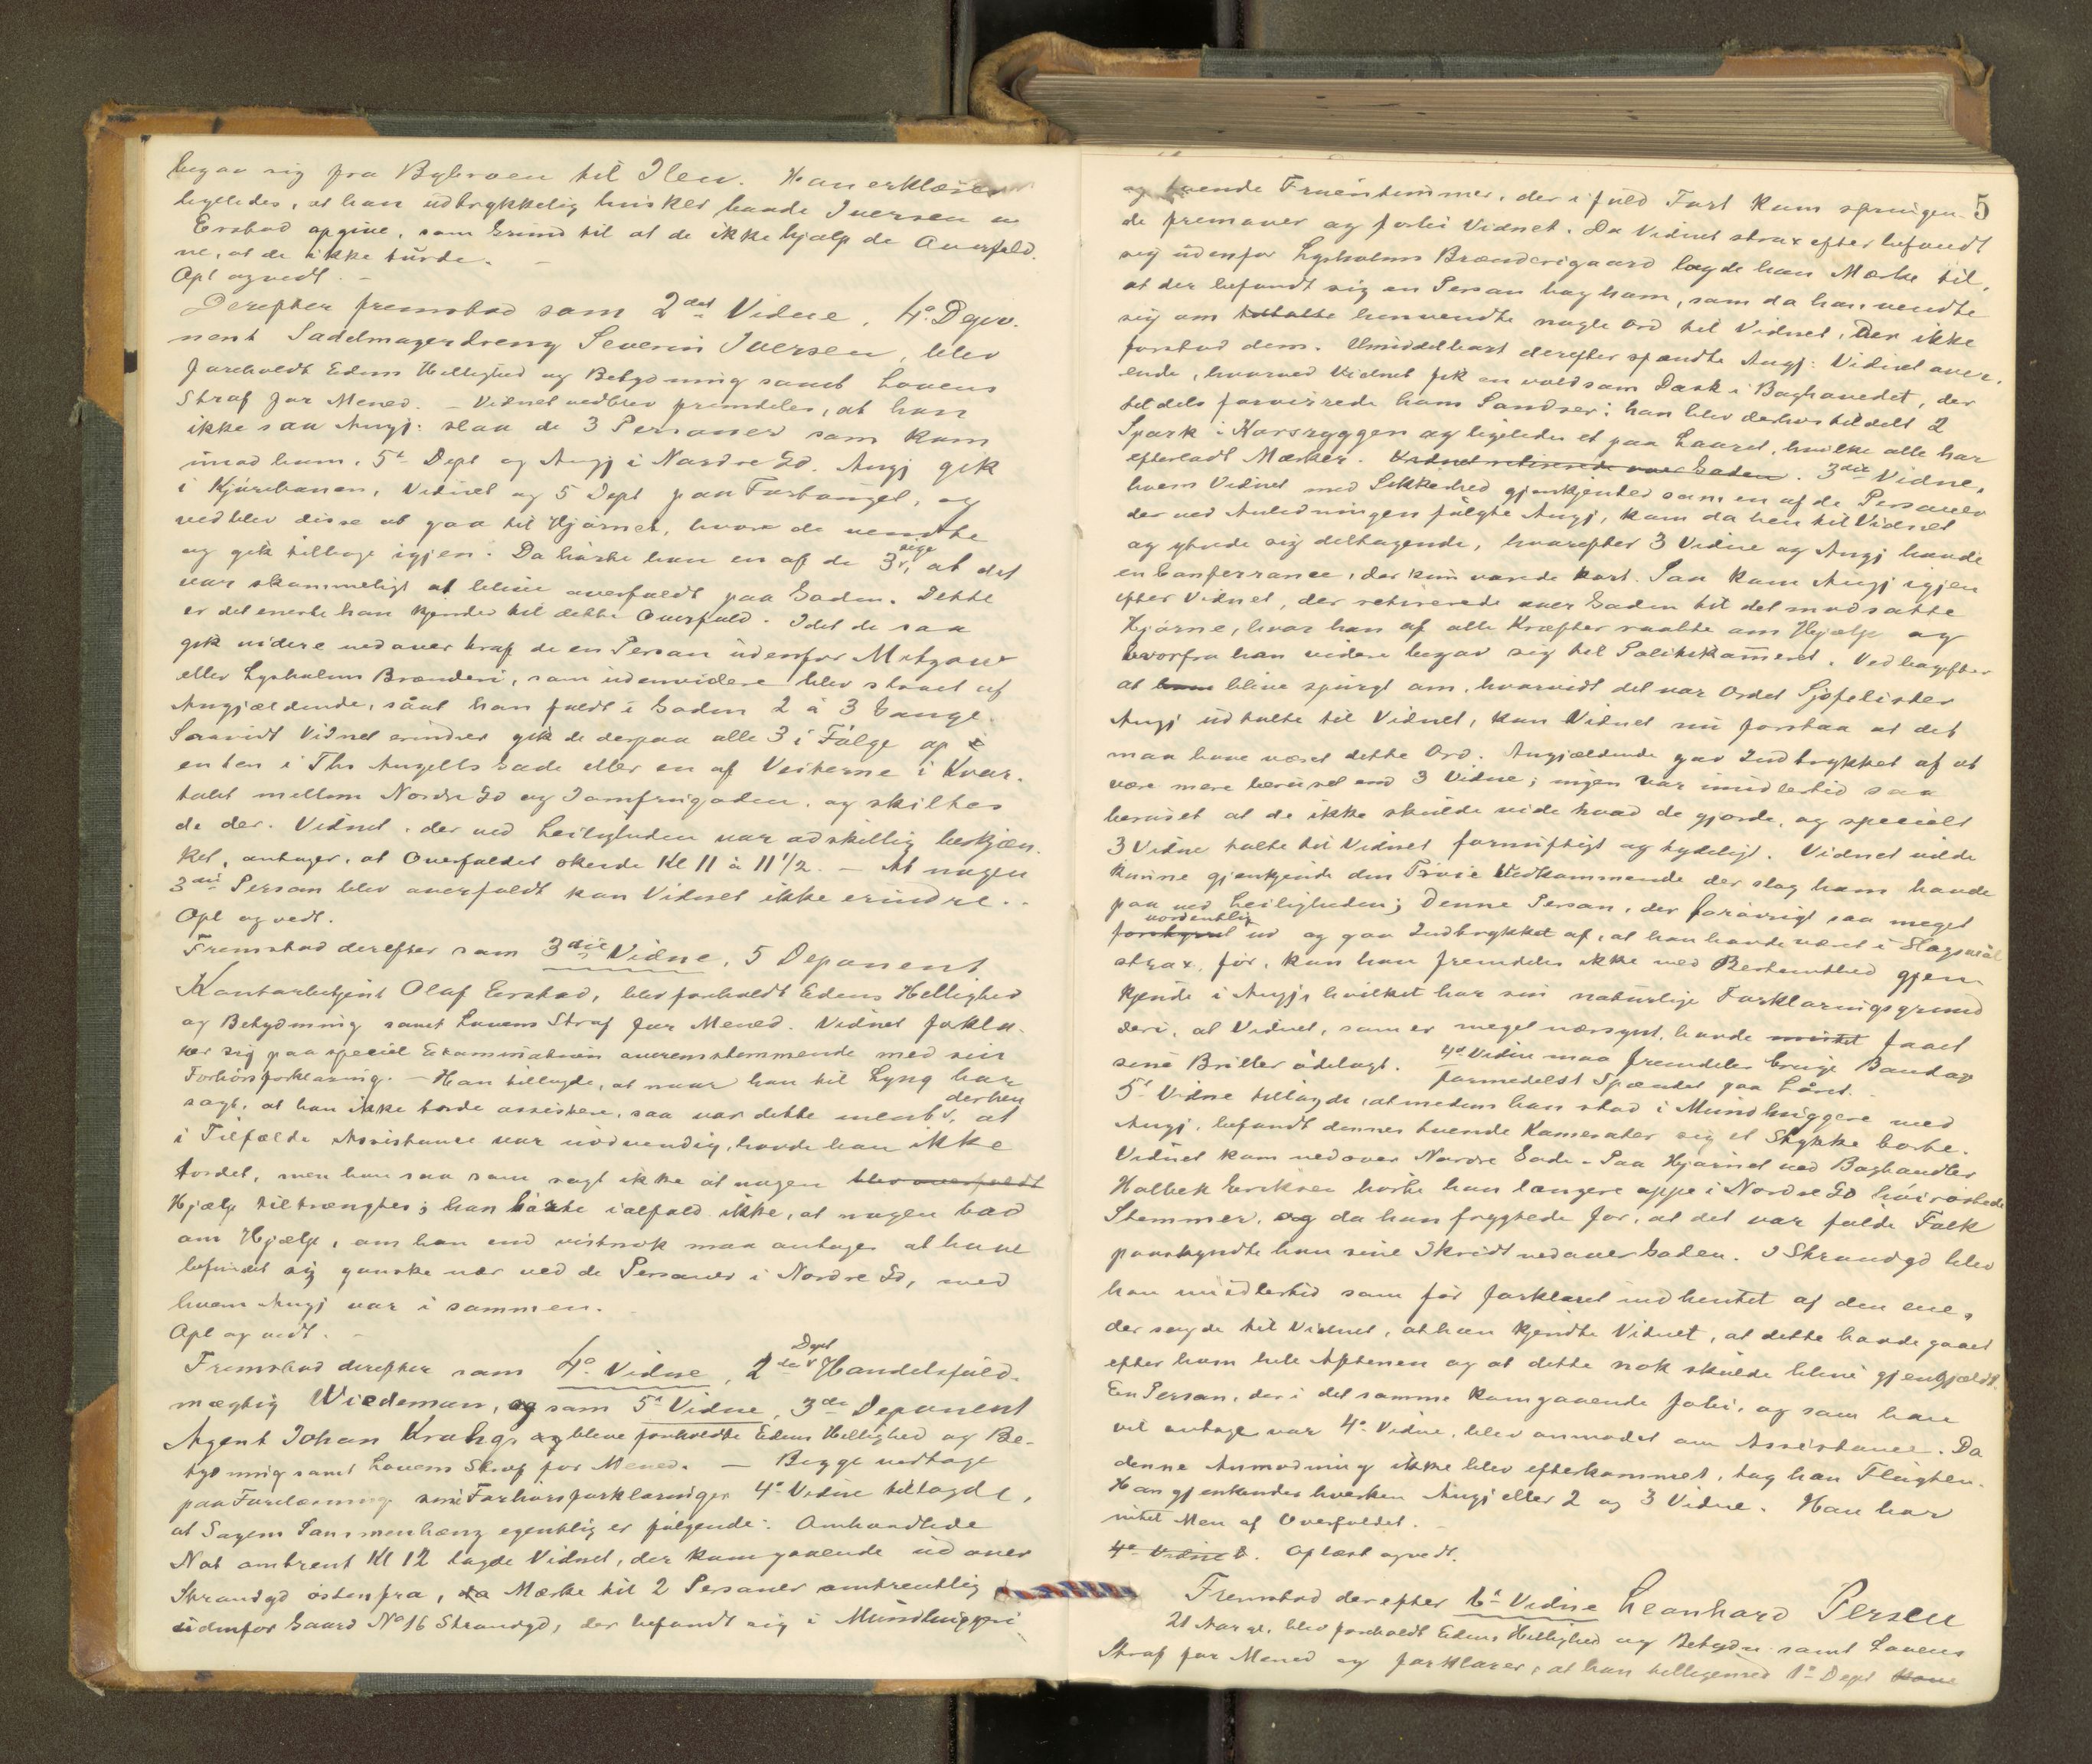 begav sig fra Bybroen til Ilen. Han erklærer
ligeledes, at han udtrykkelig husker havde Iversen og
Erstad opgive, som Grund til at de ikke hjalp de Overfald.
ne, at de ikke turde. —
Opl og vedt. —
Derefter fremstod som 2det Vidne, 4de Depo.
nent Sadelmagerdreng Severin Iversen, blev
foreholdt Edens Hellighed og Betydning samt Lovens
Straf for Mened. — Vidnet vedblev fremdeles, at han
ikke saa Angj: slaa de 3 Personer som kom
imod ham, 5te Dept og Angj i Nordre Gd. Angj gik
i Kjørebanen, Vidnet og 5 Dept paa Fortouget, og
vedblev disse at gaa til Hjørnet, hvor de vendte
og gik tilbage igjen. Da hørte han en af de 3 sige, at det
var skammeligt at blive overfaldt paa Gaden. Dette
er det eneste han kjender til dette Overfald. Idet de saa
gik videre nedover traf de en Person udenfor Matzow
eller Lysholms Brænderi, som udenvidere blev slaaet af
Angjældende, såat han faldt i Gaden 2 à 3 Gange.
Saavidt Vidnet erindrer gik de derpaa alle 3 i Følge op i
enten i Ths Angells Gade eller en af Veiterne i Kvar.
talet mellem Nordre Gd og Jomfrugaden, og skiltes
de der. Vidnet, der ved Leiligheden var adskillig beskjæn.
ket, antager, at Overfaldet skeede Kl 11 à 11 1/2. — At nogen
3die Person blev overfaldt kan Vidnet ikke erindre. -
Opl og vedt.
Fremstod derefter som 3die Vidne, 5 Deponent
Kontorbetjent Olaf Erstad, blev foreholdt Edens Hellighed
og Betydning samt Lovens Straf for Mened. Vidnet forkla-
rer sig paa speciel Examination overensstemmende med sin
Forhørsforklaring. — Han tillagde, at naar han til Lyng har
sagt, at han ikke torde assistere, saa var dette ment derhen, at
i Tilfælde Assistance var nødvendig, havde han ikke
tordet, men han saa som sagt ikke at nogen blev overfaldt
Hjælp tiltrængtes; han hørte ialfald ikke, at nogen bad
om Hjælp, om han end vistnok maa antages at have
befundet sig ganske nær ved de Personer i Nordre Gd, med
hvem Angj var i sammen.
Opl og vedt. —
Fremstod derefter som 4de Vidne, 2den Dept Handelsfuld.
mægtig Wiedeman, og som 5te Vidne, 3die Deponent
Agent Johan Krahg, og bleve foreholdte Edens Hellighed og Be-
tydning samt Lovens Straf for Mened. — Begge vedtage
paa Forelæsning sine Forhørsforklaringer 4de Vidne tillagde,
at Sagens Sammenhæng egentlig er følgende: Omhandlede
Nat omtrent Kl 12 lagde Vidnet, der kom gaaende ud over
Strandgd østenfra, da Mærke til 2 Personer omtrentlig
udenfor Gaard No 16 Strandgd, der befandt sig i Mundhuggeri
5
og tvende Fruentimmer, der i fuld Fart kom springen-
de fremover og forbi Vidnet. Da Vidnet strax efter befandt
sig udenfor Lysholms Brænderigaard lagde han Mærke til,
at der befandt sig en Person bag ham, som da han vendte
sig om tiltalte henvendte nogle Ord til Vidnet, der ikke
forstod dem. Umiddelbart derefter spændte Angj: Vidnet over.
ende, hvorved Vidnet fik en voldsom Dask i Baghovedet, der
tildels forvirrede hans Sandser; han blev derhos tildelt 2
Spark i Korsryggen og ligeledes et paa Laaret, hvilke alle har
efterladt Mærker. Vidnet retirerede over Gaden. 3die Vidne,
hvem Vidnet med Sikkerhed gjenkjender som en af de Personer
der ved Anledningen fulgte Angj, kom da hen til Vidnet
og ytrede sig deltagende, hvorefter 3 Vidne og Angj havde
en Conferrance, der kun varede kort. Saa kom Angj igjen
efter Vidnet, der retirerede over Gaden til det modsatte
Hjørne, hvor han af alle Kræfter raabte om Hjælp og
hvorfra han videre begav sig til Politikameret. Ved bagefter
at have blive spurgt om, hvorvidt det var Ordet Sjofelister
Angj udtalte til Vidnet, kan Vidnet nu forstaa at det
maa have været dette Ord. Angjældende gav Indtrykket af at
være mere beruset end 3 Vidne; ingen var imidlertid saa
beruset at de ikke skulde vide hvad de gjorde, og specielt
3 Vidne talte til Vidnet fornuftigt og tydeligt. Vidnet vilde
kunne gjenkjende den Trøie Vedkommende der slog ham havde
paa ved Leiligheden; Denne Person, der forøvrigt saa meget
forstyrret uordentlig ud og gav Indtrykket af, at han havde været i Slagsmål
strax før, kan han fremdeles ikke med Bestemthed gjen
kjende i Angj, hvilket har sin naturlige Forklaringsgrund
deri, at Vidnet, som er meget nærsynt, havde mistet faaet
sine Briller ødelagt. 4de Vidne maa fremdeles bruge Bandage
formedelst Spændet paa Låret.
5te Vidne tillagde, at medens han stod i Mundhuggeri med
Angj, befandt dennes tvende Kamerater sig et Stykke borte.
Vidnet kom nedover Nordre Gade. Paa Hjørnet ved Boghandler
Holbek Eriksen hørte han længere oppe i Nordre Gd høirøstede
Stemmer, og da han frygtede for, at det var fulde Folk
paaskyndte han sine Skridt nedover Gaden. I Strandgd blev
han imidlertid som før forklaret indhentet af den ene,
der sagde til Vidnet, at han kjendte Vidnet, at dette havde gaaet
efter ham hele Aftenen og at dette nok skulde blive gjengjældt.
En Person, der i det samme kom gaaende forbi, og som han
vil antage var 4de Vidne, blev anmodet om Assistance. Da
denne Anmodning ikke blev efterkommet, tog han Flugten.
Han gjenkjender hverken Angj eller 2 og 3 Vidne. Han har
intet Men af Overfaldet. —
4de Vidne b. Oplæst og vedt.
Fremstod derefter 6te Vidne Leonhard Persen
21 Aar gl, blev foreholdt Edens Hellighed og Betydn. samt Lovens
Straf for Mened og forklarer, at han tilligemed 1ste Dept Hove